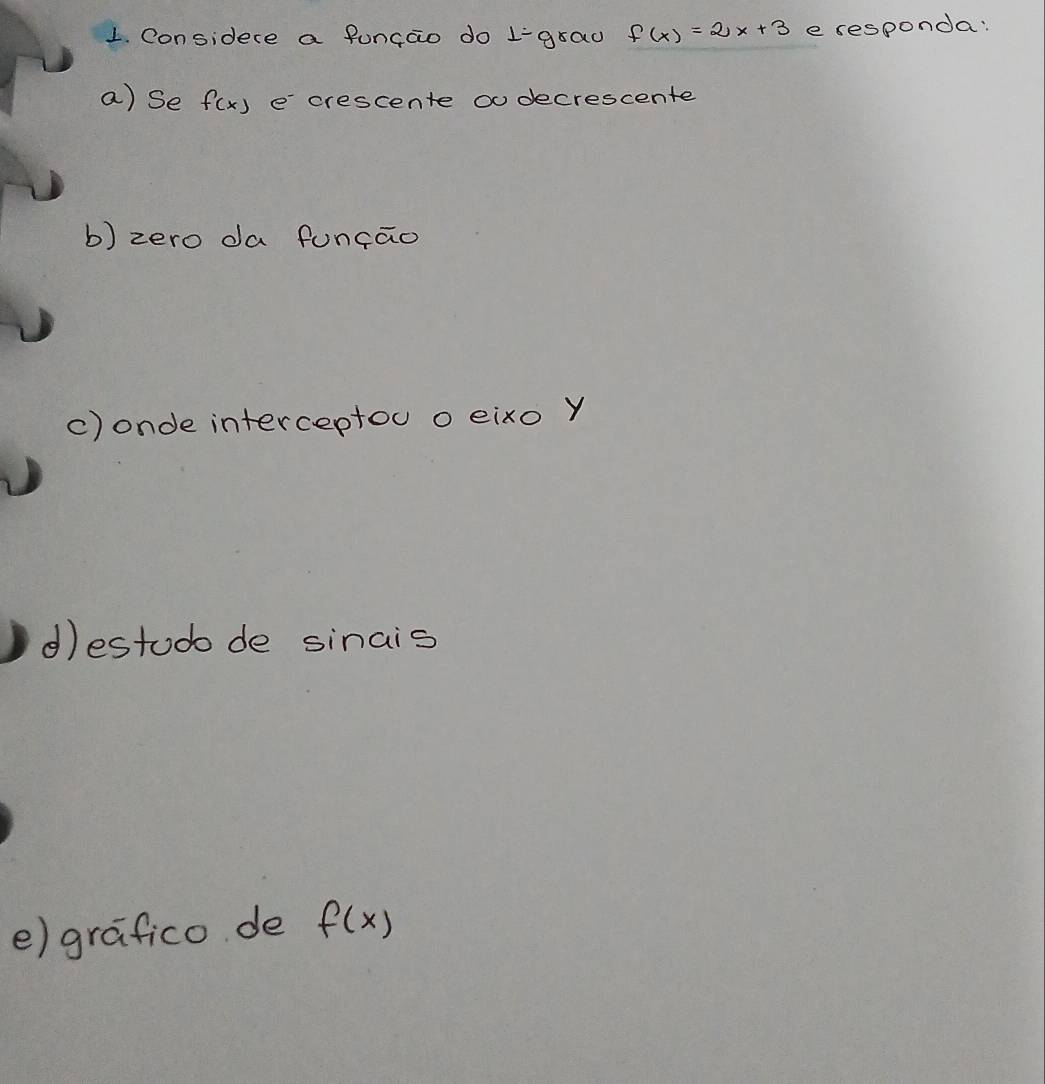 1. Considere a função do 1º grau f(x) = 2x+3 e responda:
a) Se f(x) é crescente ou decrescente
b) zero da função
c) onde interceptou o eixo y
d) estudo de sinais
e) gráfico de f(x)